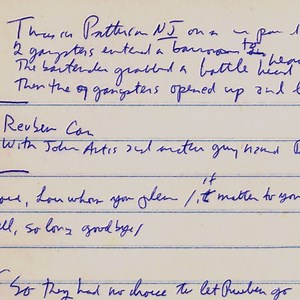 Twas in Patterson NJ on a
2 gangsters entered a barroom to
The bartender grabbed a bottle
Then the gangsters opened up and
Reuben Car
With John Artis and another guy named
love, Love whom you please / it matter to you
ell, so long goodbye /
So they had no choice to let Reuben go